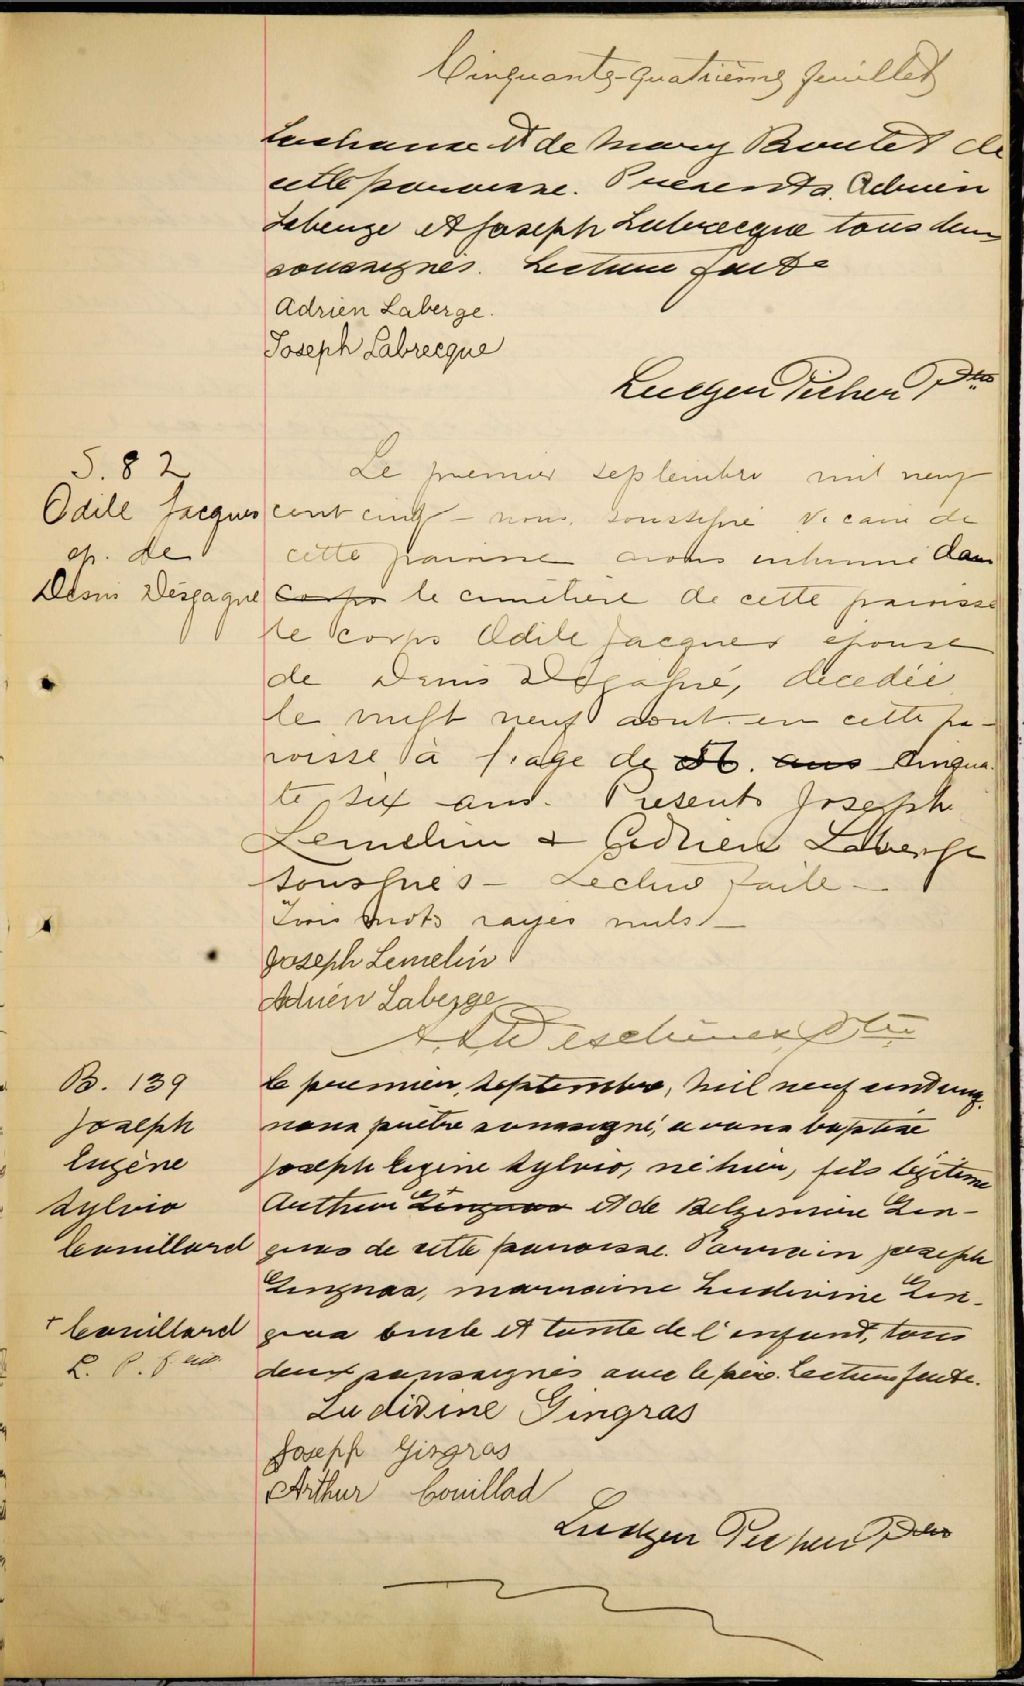 Cinquante-quatrième feuillet
Lachance et de Mary Boutet de
cette paroisse. Présents Adrien
Laberge et Joseph Labrecque tous deux
soussignés. Lecture faite
Adrien Laberge.
Joseph Labrecque
Ludger Picher Ptre
S. 82
Odile Jacques
ép. de
Denis Désgagné
Le premier septembre mil neuf
cent cinq - nous, soussigné vicaire de
cette paroisse avons inhumé dans
corps le cimetière de cette paroisse
le corps Odile Jacques épouse
de Denis Désgagné, décédée
le vingt neuf aout en cette pa-
roisse à l'age de 56. ans cinqua-
te six ans. Présents Joseph
Lemelin & Adrien Laberge
sousignés - Lecture faite -
Trois mots rayés nuls -
Joseph Lemelin
Adrien Laberge
Deschenes Ptre
B. 139
Joseph
Eugène
Sylvio
Couillard
+ Couillard
L. P. Ptre
Le premier, septembre, mil neuf cent cinq.
nous prêtre soussigné, avons baptisé
Joseph Eugène Sylvio, né hier, fils légitime
Arthur Gingras et de Belzemire Gin-
gras de cette paroisse. Parrain Joseph
Gingras, marraine Ludivine Gin-
gras oncle et tante de l'enfant, tous
deux soussignés avec le père. Lecture faite.
Ludivine Gingras
Joseph Gingras
Arthur Couillad
Ludger Picher Ptre